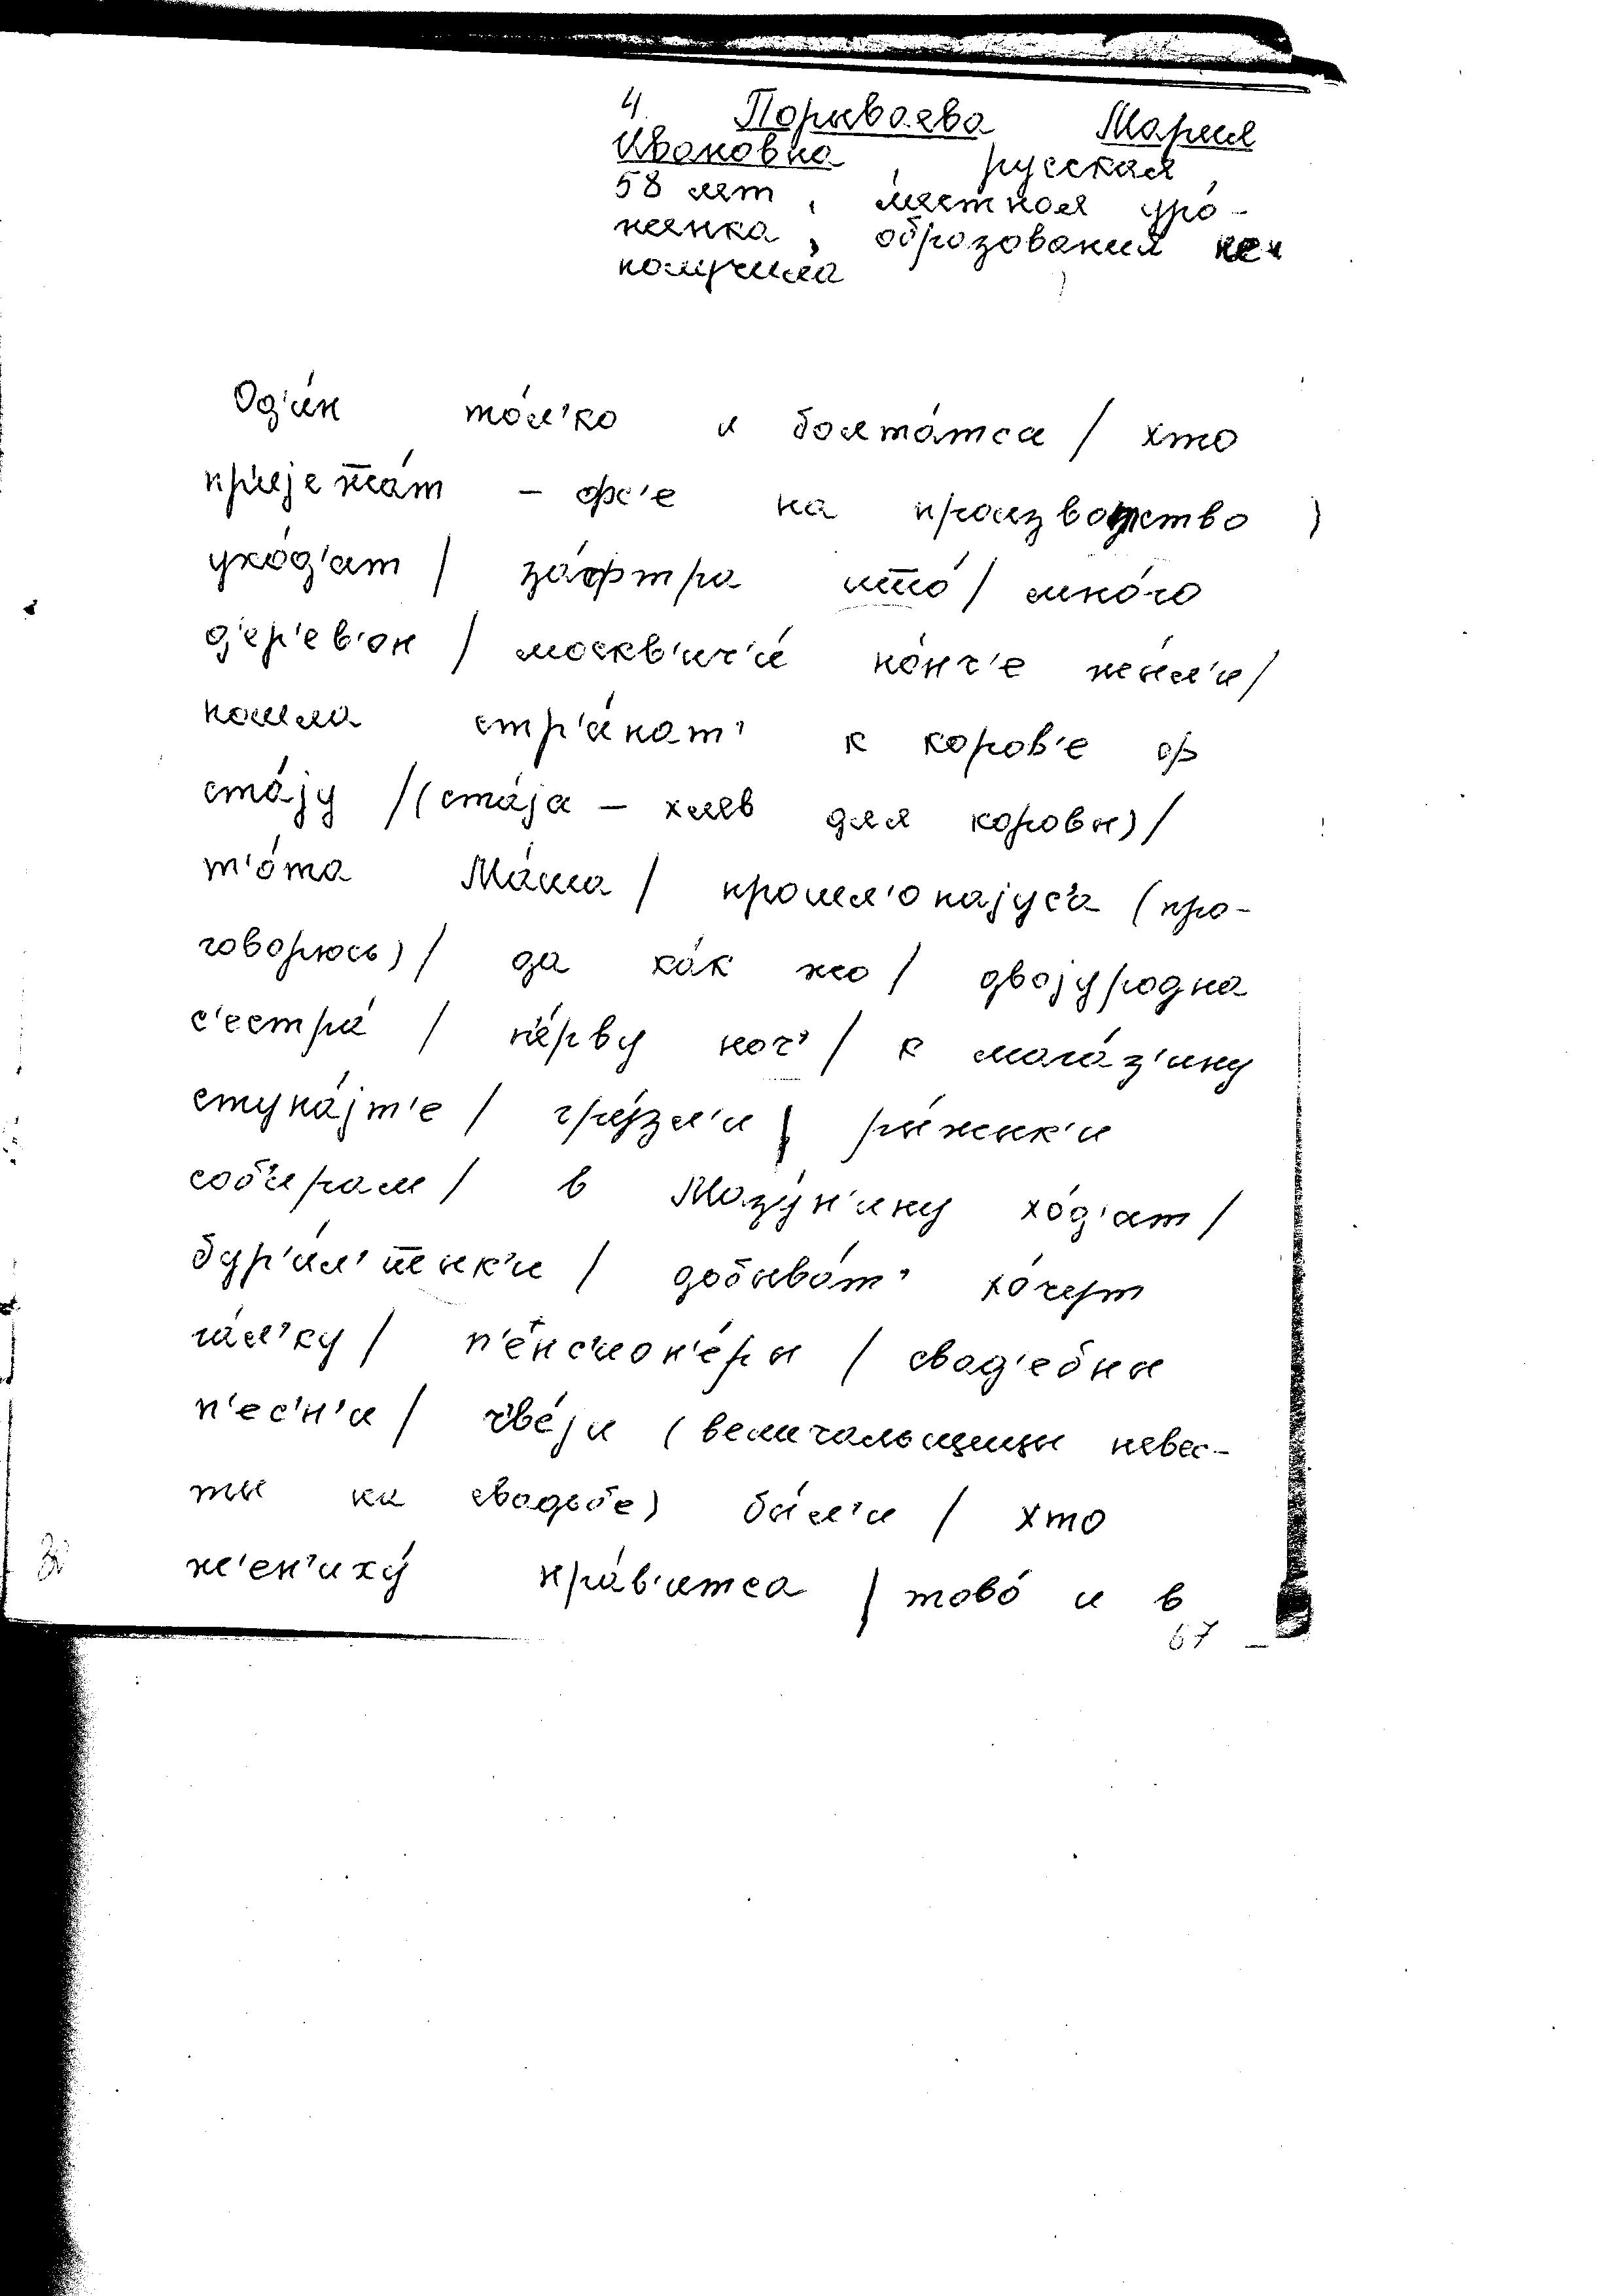 4. Порываева Мария
Ивановна, русская,
58 лет, местная уро-
женка, образования не
получила
Од'и́н то́л'ко и болта́тса / хто
пр'ијежа́т – фс'е на производство
ухо́д'ат / за́фтра што́ / мно́го
д'ер'ев'он / москв'ич'и́ но́нч'е жы́л'и /
пошла стр'а́пат' к коров'е ф
ста́jу / (ста́jа – хлев для коровы) /
т'о́та Ма́ша / прошл'опаjус'а (про-
говорюсь) / да ка́к жо / двоjуродна
с'естра́ / п'е́рву ноч' / к мага́з'ину
ступа́jт'е / гру́зл'и / ры́жык'и
соб'ирам / в Мазу́н'ину хо́д'ат /
бур'и́л'шык'и / добыва́т' хо́чут
га́л'ку / п'енс'ион'е́ры / свад'ебны
п'ес'н'и / ч'ве́jи (величальщицы невес-
ты на свадьбе) бы́л'и / хто
ж'ен'иху́ нра́в'итса / тово́ и в
67
30